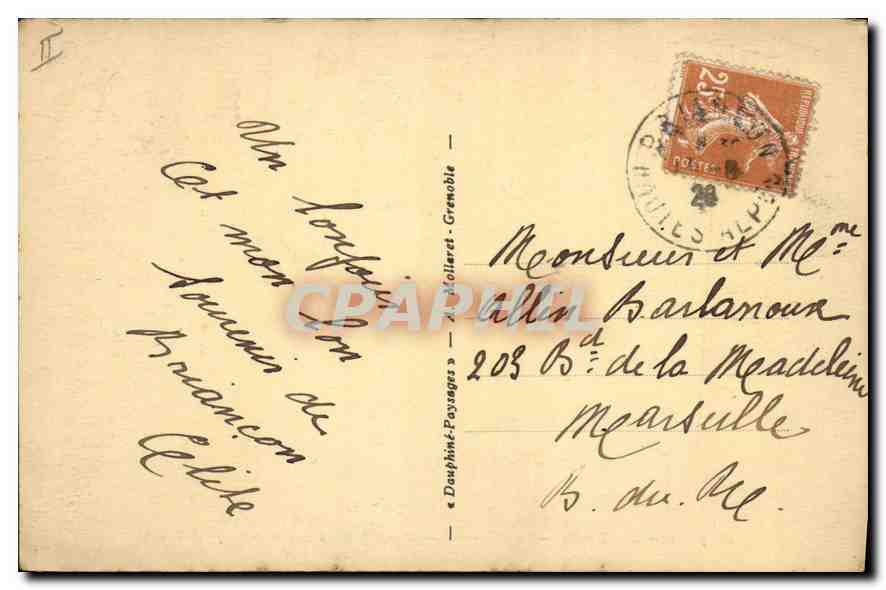 II
Un
toujours bon
Cet mon
souvenir de
Briançon
« Dauphiné-Paysages » — Mollaret - Grenoble
CPAPHIL
25
POSTES
BRIANÇON
28
HAUTES ALPES
Monsieur et Mme
Allin Barlanoux
203 Bd de la Madeleine
Marseille
B. du. R.